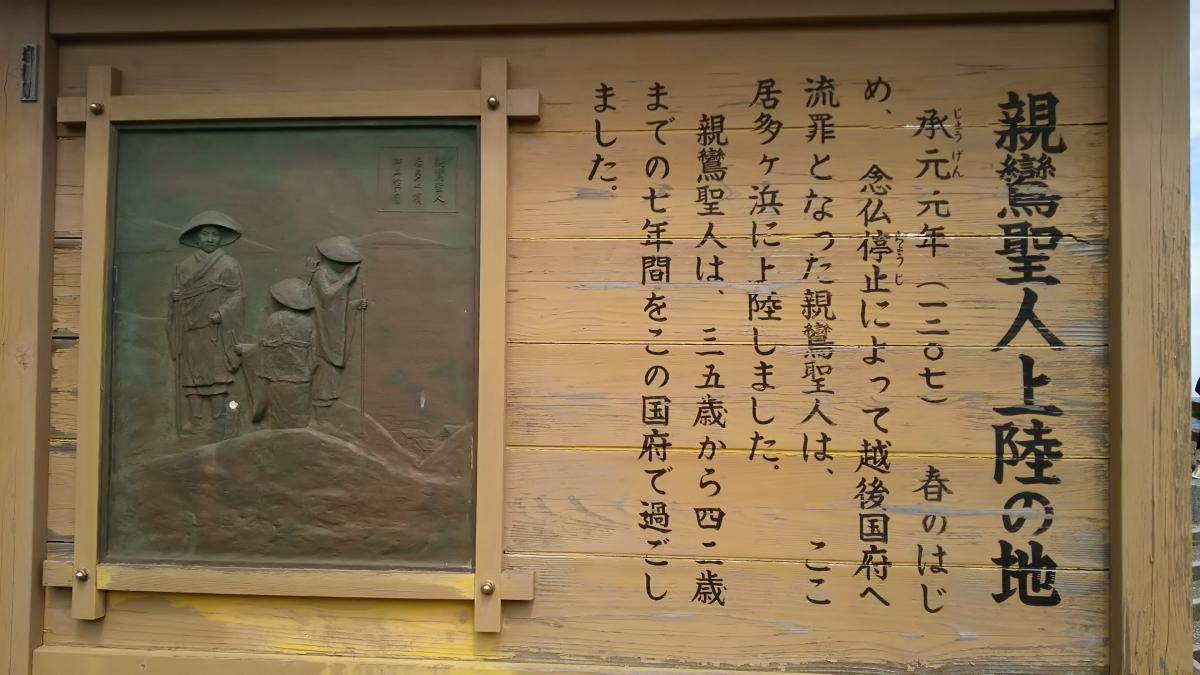 親鸞聖人上陸の地
承元元年（一二〇七）　春のはじ
じょう げん
め、　念仏停止によって越後国府へ
ちょうじ
流罪となった親鸞聖人は、　ここ
居多ヶ浜に上陸しました。
親鸞聖人は、三五歳から四二歳
までの七年間をこの国府で過ごし
ました。
親鸞聖人
居多ヶ浜